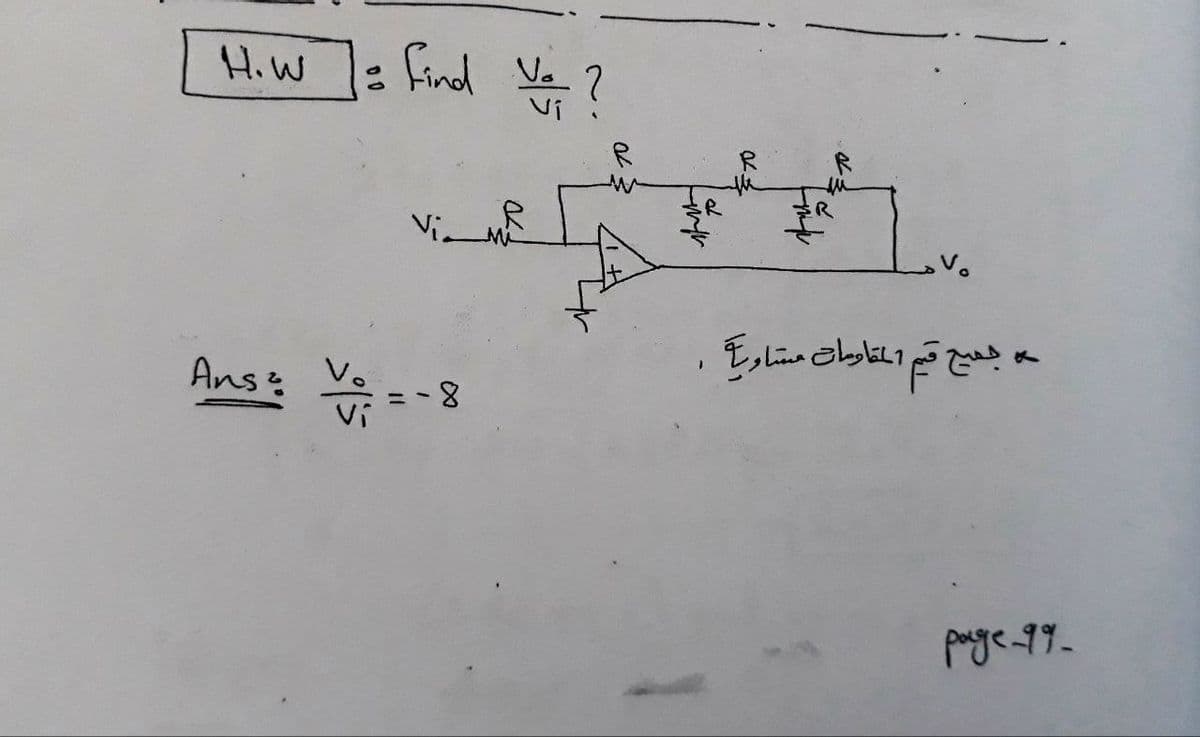 H.W : Find Vo/Vi ?
R R R
Vi R R R
- +
Vo
* جميع قيم المقاومات متساوية .
Ans: Vo/Vi = -8
page-99-